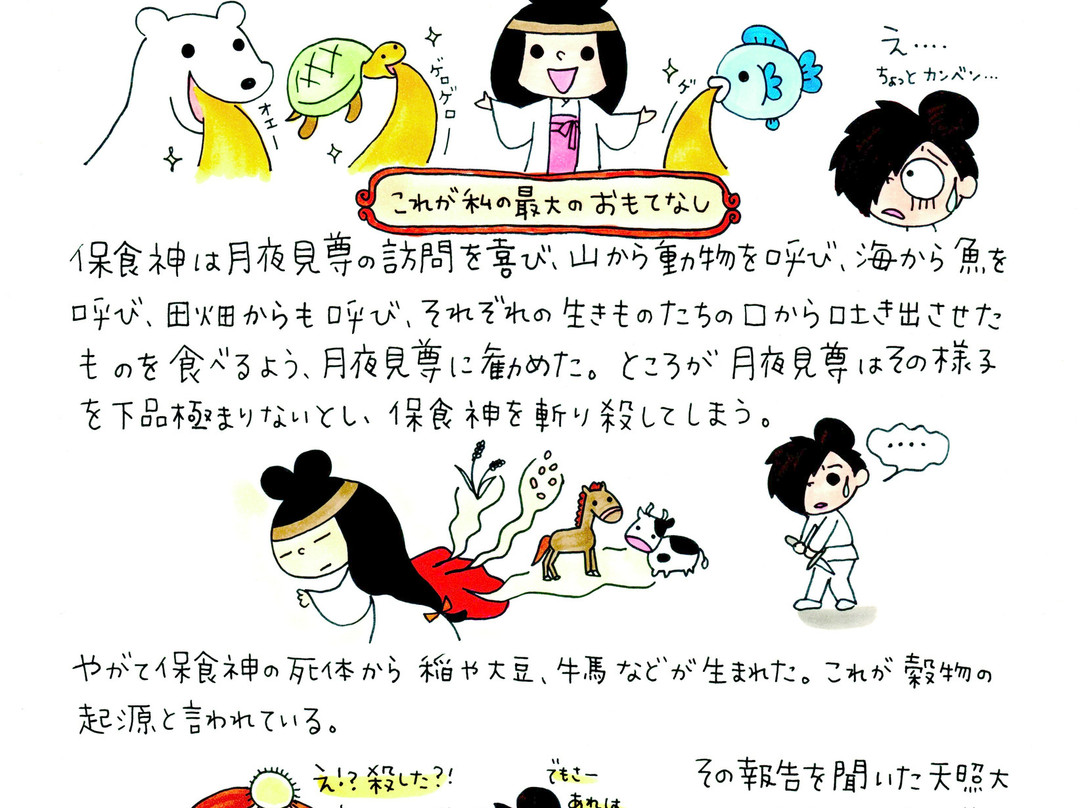 え‥‥
ちょっとカンベン…
オエー
ゲロゲロ
ゲ
これが私の最大のおもてなし
保食神は月夜見尊の訪問を喜び、山から動物を呼び、海から魚を
呼び、田畑からも呼び、それぞれの生きものたちの口から吐き出させた
ものを食べるよう、月夜見尊に勧めた。ところが月夜見尊はその様子
を下品極まりないとし、保食神を斬り殺してしまう。
‥‥
やがて保食神の死体から稲や大豆、牛馬などが生まれた。これが穀物の
起源と言われている。
え!?殺した?!
でもさー
あれは
その報告を聞いた天照大